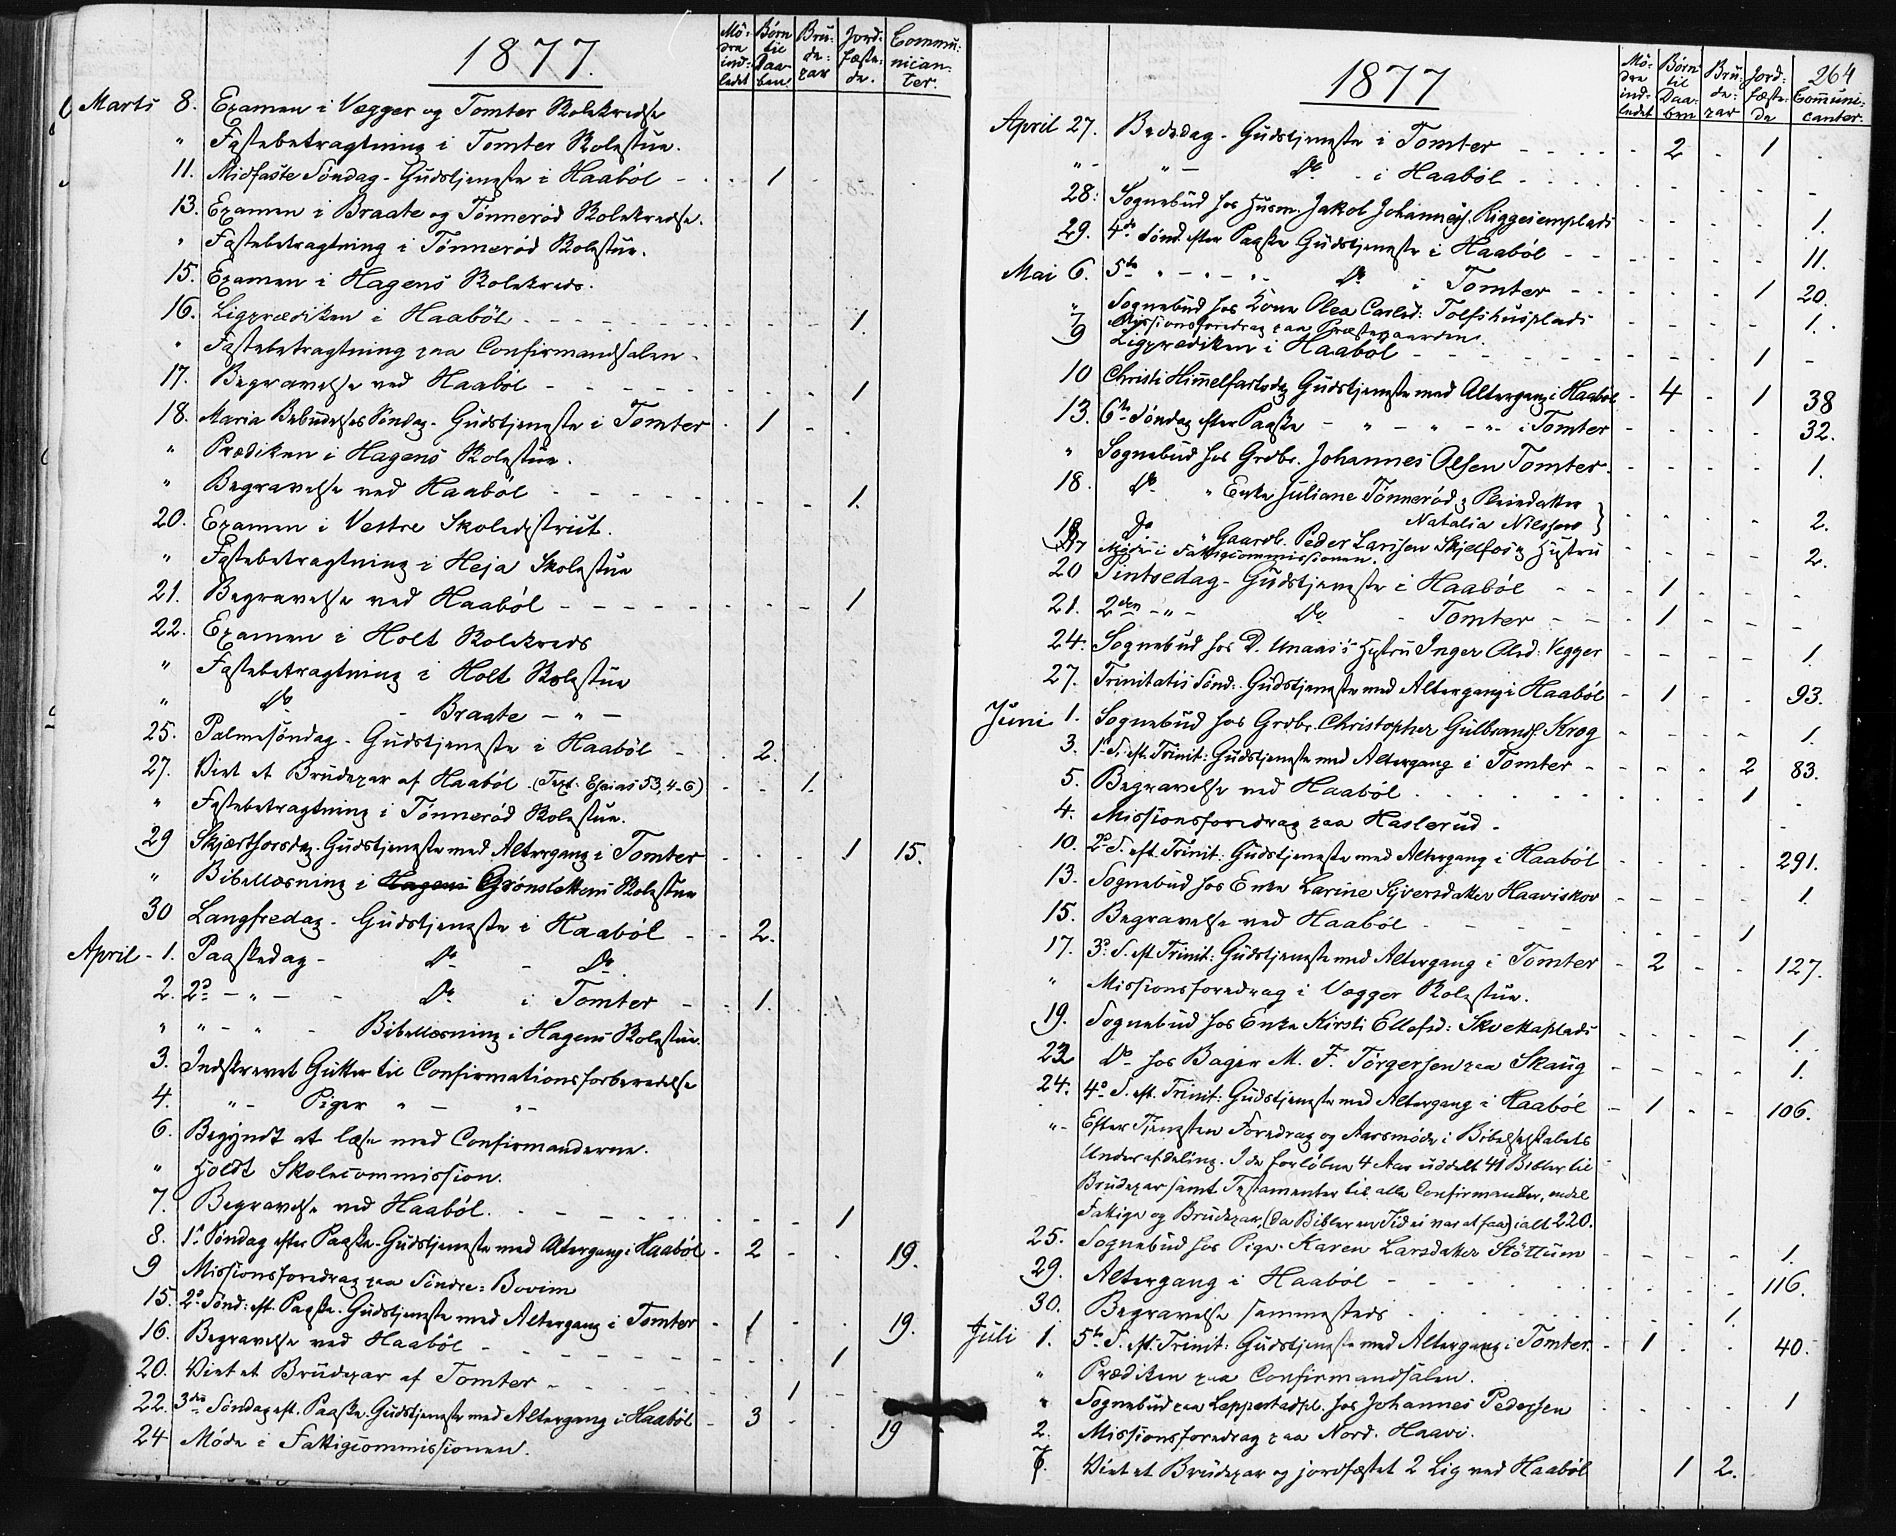 1877.
Mö-
dre
ind-
ledet
Børn
til
Daa-
ben
Bru-
de-
par
Jord-
fæste-
de.
Commu-
nican-
ter.
Marts 8. Examen i Vægger og Tomter Skolekredse
" Fastebetragtning i Tomter Skolestue.
11. Midfaste Söndag - Gudstjeneste i Haaböl - 1
13. Examen i Braate og Tönneröd Skolekredse.
" Fastebetragtning i Tönneröd Skolestue.
15. Examen i Hagens Skolekreds.
16. Ligprædiken i Haaböl - 1.
" Fastebetragtning paa Confirmandsalen.
17. Begravelse ved Haaböl - 1
18. Maria Bebudelses Söndag - Gudstjeneste i Tomter 1
" Prædiken i Hagens Skolestue.
" Begravelse ved Haaböl - 1.
20. Examen i Vestre Skoledistrict.
" Fastebetragtning i Heja Skolestue
21. Begravelse ved Haaböl - 1
22. Examen i Holt Skolekreds
" Fastebetragtning i Holt Skolestue
" Do - Braate - " -
25. Palmesöndag - Gudstjeneste i Haaböl - 2.
27. Viet et Brudepar af Haaböl (Text. Esaias 53, 4-6) 1.
" Fastebetragtning i Tönneröd Skolestue.
29 Skjærthorsdag. Gudstjeneste med Altergang i Tomter 1 15.
" Bibellæsning i Hagens Grönslettens Skolestue
30 Langfredag - Gudstjeneste i Haaböl - 2.
April - 1. Paaskedag - Do - Do.
2. 2D - " - Do. i Tomter - 1.
" " - " - Bibellæsning i Hagens Skolestue.
3. Indskrevet Gutter til Confirmationsforberedelse
4. " - Piger " - " -
6. Begyndt at læse med Confirmanderne.
" Holdt Skolecommission.
7. Begravelse ved Haaböl. - 1
8. 1ste Söndag efter Paaske - Gudstjeneste med Altergang i Haaböl - 2 19.
9 Missionsforedrag paa Söndre: Bovim
15. 2D Sönd: eft. Paaske. Gudstjeneste med Altergang i Tomter - 1 19.
16. Begravelse ved Haaböl - 1
20. Viet et Brudepar af Tomter - 1
22. 3die Söndag eft. Paaske. Gudstjeneste med Altergang i Haaböl - 3 19
24 Möde i Fattigcommissionen.
1877
264
Mö-
dre
ind-
ledet
Börn
til
Daa-
ben
Bru-
de-
par
Jord-
fæste-
de
Communi-
canter.
April 27. Bededag - Gudstjeneste i Tomter - 2 - 1
" - " - Do - i Haaböl
28. Sognebud hos Husm. Jakob Johannes. Riggesemplads 1.
29. 4de Sönd. efter Paaske Gudstjeneste i Haaböl - 11.
Mai 6. 5te " - " - " - Do i Tomter - 1 20.
" Sognebud hos Kone Olea Carlsd: Tolfshusplads 1.
7 Missionsforedrag paa Præstegaarden.
9 Ligprædiken i Haaböl - 1
10 Christi Himmelfartsdag Gudstjeneste med Altergang i Haaböl - 4 - 1 38
13. 6te Söndag efter Paaske - " - " - " - i Tomter 32.
" Sognebud hos Grdbr. Johannes Olsen Tomter. 1.
18. Do " Enke Juliane Tönneröd & Pleiedatter
Natalia Nilssen } 2.
19 Do " Gaardb. Peder Larssen Skjelfos & Hystru 2.
17 Möde i Fattigcommissionen.
20 Pintsedag - Gudstjeneste i Haaböl - 1
21. 2den - " - Do - Tomter - 1
24. Sognebud hos D. Unaas's Hystru Inger Olsd: Vegger 1.
27. Trinitatis Sönd: Gudstjeneste med Altergang i Haaböl - 1 93.
Juni 1. Sognebud hos Grdbr. Christopher Gulbrands. Krog 1.
3. 1. S. eft. Trinit: Gudstjeneste med Altergang i Tomter - 2 83.
5. Begravelse ved Haaböl - 1
4. Missionsforedrag paa Haslerud.
10. 2D S. eft. Trinit: Gudstjeneste med Altergang i Haaböl 291.
13. Sognebud hos Enke Larine Syversdatter Haaviskov 1.
15. Begravelse ved Haaböl - 1
17. 3D S. eft Trinit: Gudstjeneste med Altergang i Tomter - 2 127.
" Missionsforedrag i Vægger Skolestue.
19. Sognebud hos Enke Kirsti Ellefsd: Skotteplads 1.
22 Do hos Bager M. F. Törgersen paa Skaug 1.
24. 4D S. eft. Trinit: Gudstjeneste med Altergang i Haaböl - 1 106.
" - Efter Tjenesten Foredrag og Aarsmöde i Bibelselskabets
Underafdeling. I de forlöbne 4 Aar uddelt 41 Bibler til
Brudepar samt Testamenter til alle Confirmander, endel
Fattige og Brudepar, (da Bibler en Tid ei var at faa) ialt 220.
25. Sognebud hos Pige Karen Larsdatter Stöttum 1.
29. Altergang i Haaböl - 116.
30. Begravelse sammesteds 1.
Juli 1. 5te S. eft. Trinit: Gudstjeneste med Altergang i Tomter. - 1 40.
" Prædiken paa Confirmandsalen.
" Sognebud paa Leppestadpl. hos Johannes Pedersen 1
2. Missionsforedrag paa Nord. Haavi.
7. Viet et Brudepar og jordfæstet 2 Lig ved Haaböl 1 2.